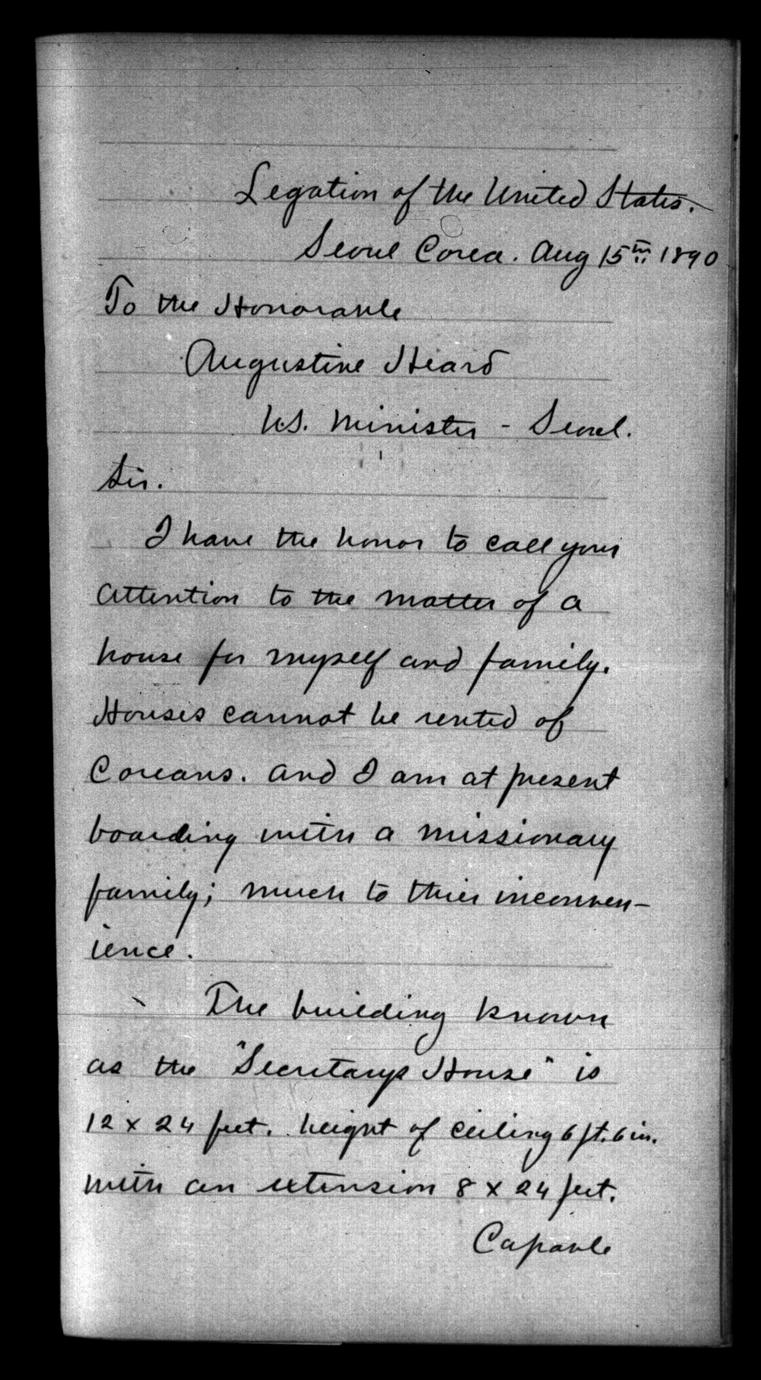 Legation of the United States.
Seoul Corea. Aug 15th 1890
To the Honorable
Augustine Heard
U.S. Minister - Seoul.
Sir.
I have the honor to call your
attention to the matter of a
house for myself and family.
Houses cannot be rented of
Coreans. and I am at present
boarding with a missionary
family; much to their inconven-
ience.
The building known
as the "Secretarys House" is
12 x 24 feet. height of ceiling 6 ft. 6 in.
with an extension 8 x 24 feet.
Capable